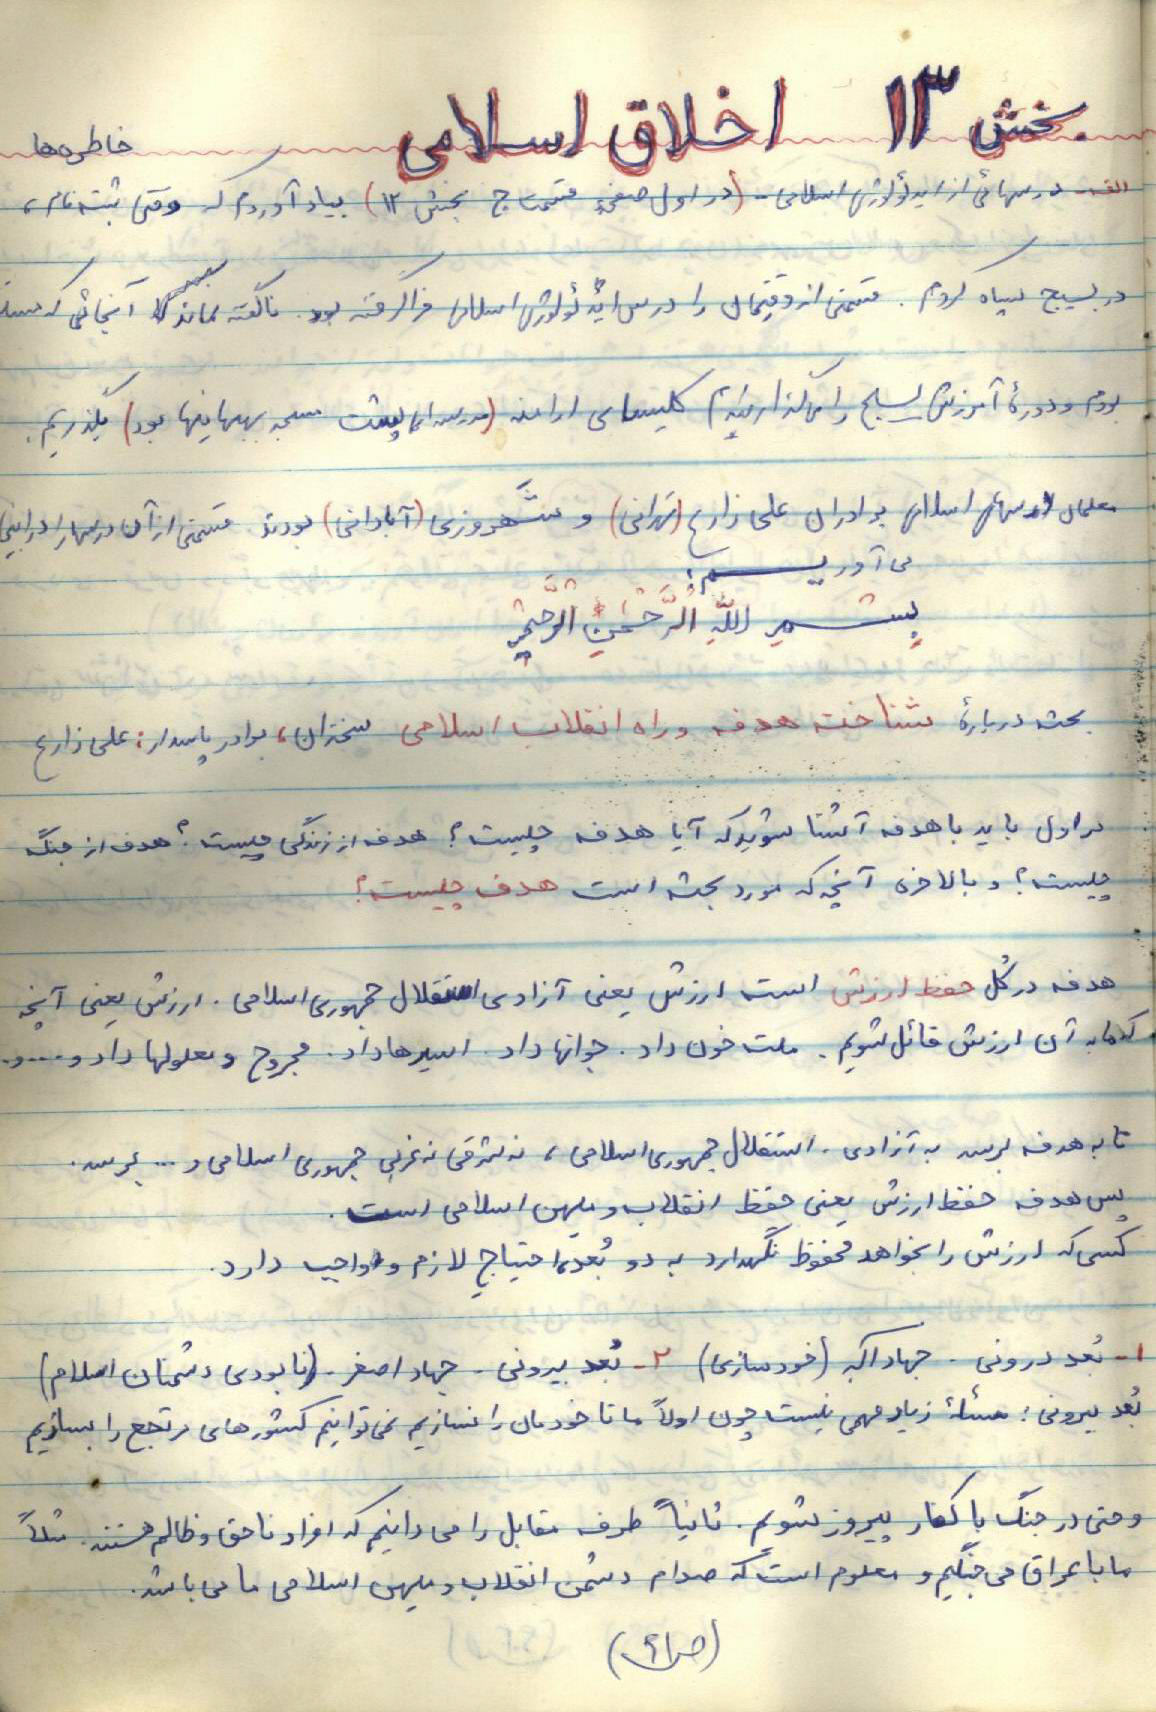 بخش ۱۳ اخلاق اسلامی
خاطره‌ها
الف - درسهائی از ایدئولوژی اسلامی - (در اول صفحهٔ قسمت ج بخش ۱۲) بیاد آوردم که وقتی ثبت نام،
در بسیج سپاه کردم. قسمتی از وقتمان را درس ایدئولوژی اسلامی فرا گرفته بود. ناگفته نماند آنجائی که
بودم و دورهٔ آموزش بسیج را می‌گذراندم کلیسای ارامنه (مدرسه‌ای پشت مسجد بهبهانیها بود) بگذریم.
معلمان درسهای اسلامی برادران علی زارع (تهرانی) و شهروزی (آبادانی) بودند قسمتی از آن درسها را در اینجا
می‌آوریم:
بِسْمِ اللَّهِ الرَّحْمنِ الرَّحیمِ
بحث دربارهٔ شناخت هدف و راه انقلاب اسلامی سخنران، برادر پاسدار: علی زارع
در اول باید با هدف آشنا شوید که آیا هدف چیست؟ هدف از زندگی چیست؟ هدف از جنگ
چیست؟ و بالاخره آنچه که مورد بحث است هدف چیست؟
هدف در کُل حفظ ارزش است ارزش یعنی آزادی استقلال جمهوری اسلامی. ارزش یعنی آنچه
که ما به آن ارزش قائل شویم. ملت خون داد. جوانها داد. اسیرها داد. مجروح و معلولها داد و....و..
تا به هدف برسد به آزادی. استقلال جمهوری اسلامی، نه شرقی نه غربی جمهوری اسلامی و ... برسد.
پس هدف حفظ ارزش یعنی حفظ انقلاب و میهن اسلامی است.
کسی که ارزش را بخواهد محفوظ نگهدارد به دو بُعد، احتیاج لازم و واجب دارد.
۱- بُعد درونی - جهاد اکبر (خودسازی) ۲- بُعد بیرونی - جهاد اصغر - (نابودی دشمنان اسلام)
بُعد بیرونی: مسئلهٔ زیاد مهمی نیست چون اولاً ما تا خودمان را نسازیم نمی‌توانیم کشورهای مرتجع را بسازیم
و حتی در جنگ با کفار پیروز شویم. ثانیاً طرف مقابل را می‌دانیم که افراد ناحق و ظالم هستند. مثلاً
ما با عراق می‌جنگیم و معلوم است که صدام دشمن انقلاب و میهن اسلامی ما می‌باشد.